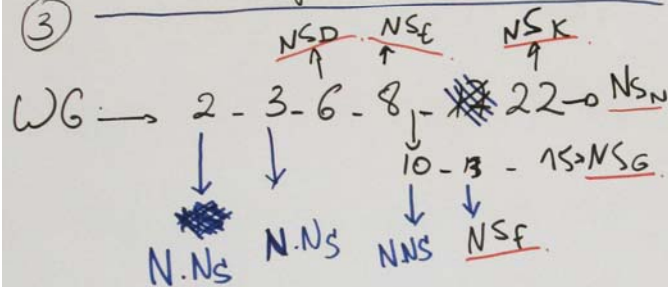 ③
NSD NSE NSK
WG → 2 - 3 - 6 - 8 - 22 → NSN
10 - 13 - 15 → NSG
N.NS N.NS NNS NSF